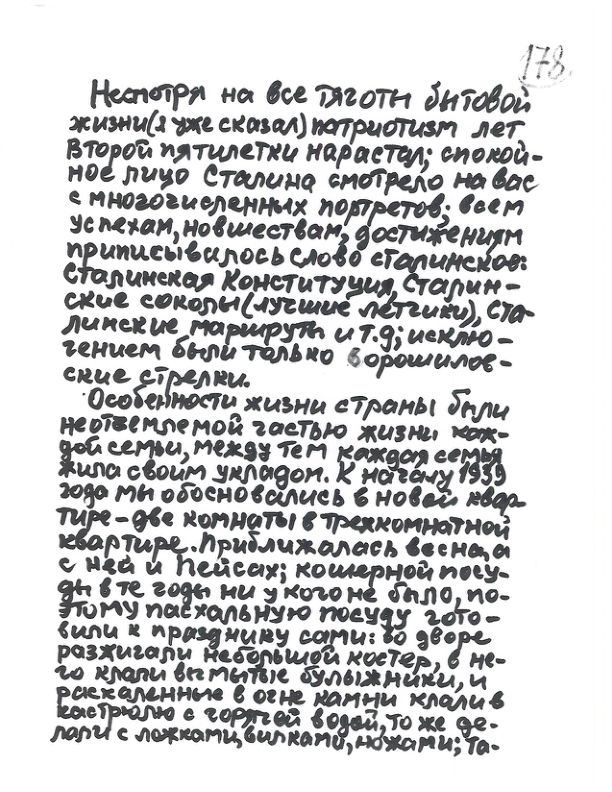 178
Несмотря на все тяготы бытовой
жизни(я уже сказал) патриотизм лет
второй пятилетки нарастал; спокой-
ное лицо Сталина смотрело на вас
с многочисленных портретов; всем
успехам, новшествам, достижениям
приписывалось слово сталинское:
Сталинская Конституция, Сталин-
ские соколы(лучшие летчики), Ста-
линские маршруты и т.д; исклю-
чением были только ворошилов-
ские стрелки.
Особенности жизни страны были
неотъемлемой частью жизни каж-
дой семьи, между тем каждая семья
жила своим укладом. К началу 1939
года мы обосновались в новой квар-
тире – две комнаты в трехкомнатной
квартире. Приближалась весна, а
с ней и Пейсах; кошерной посу-
ды в те годы ни у кого не было, по-
этому пасхальную посуду гото-
вили к празднику сами: во дворе
разжигали небольшой костер, в не-
го клали вымытые булыжники, и
раскаленные в огне камни клали в
кастрюлю с горячей водой, то же де-
лали с ложками, вилками, ножами; та-